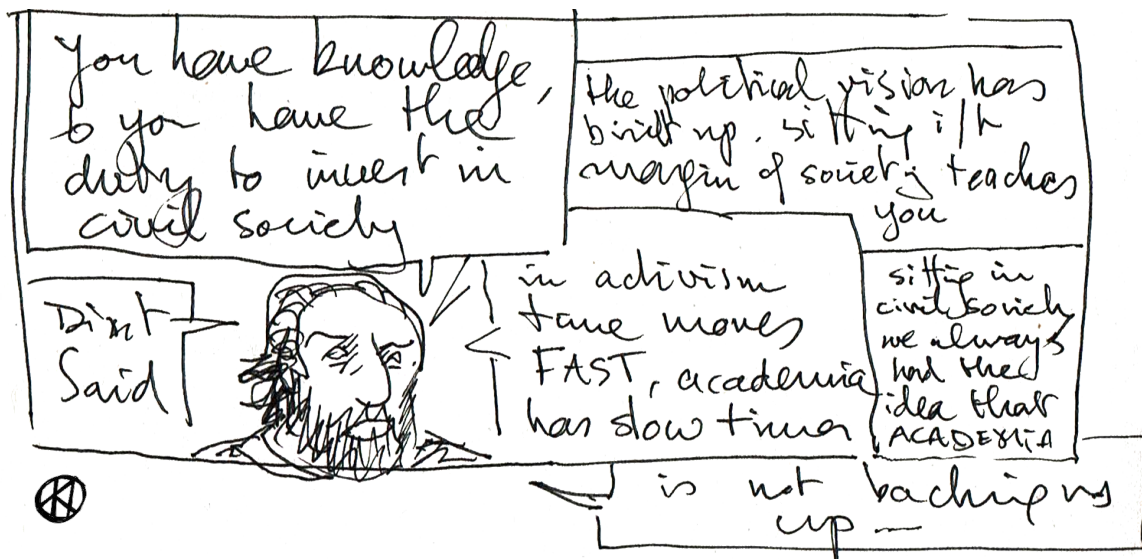 You have knowledge,
so you have the
duty to invest in
civil society
the political vision has
built up. sitting i/t
margin of society teaches
you
Dint
Said
in activism
time moves
FAST, academia
has slow times
sitting in
civil society
we always
had the
idea that
ACADEMIA
is not backing us
up —